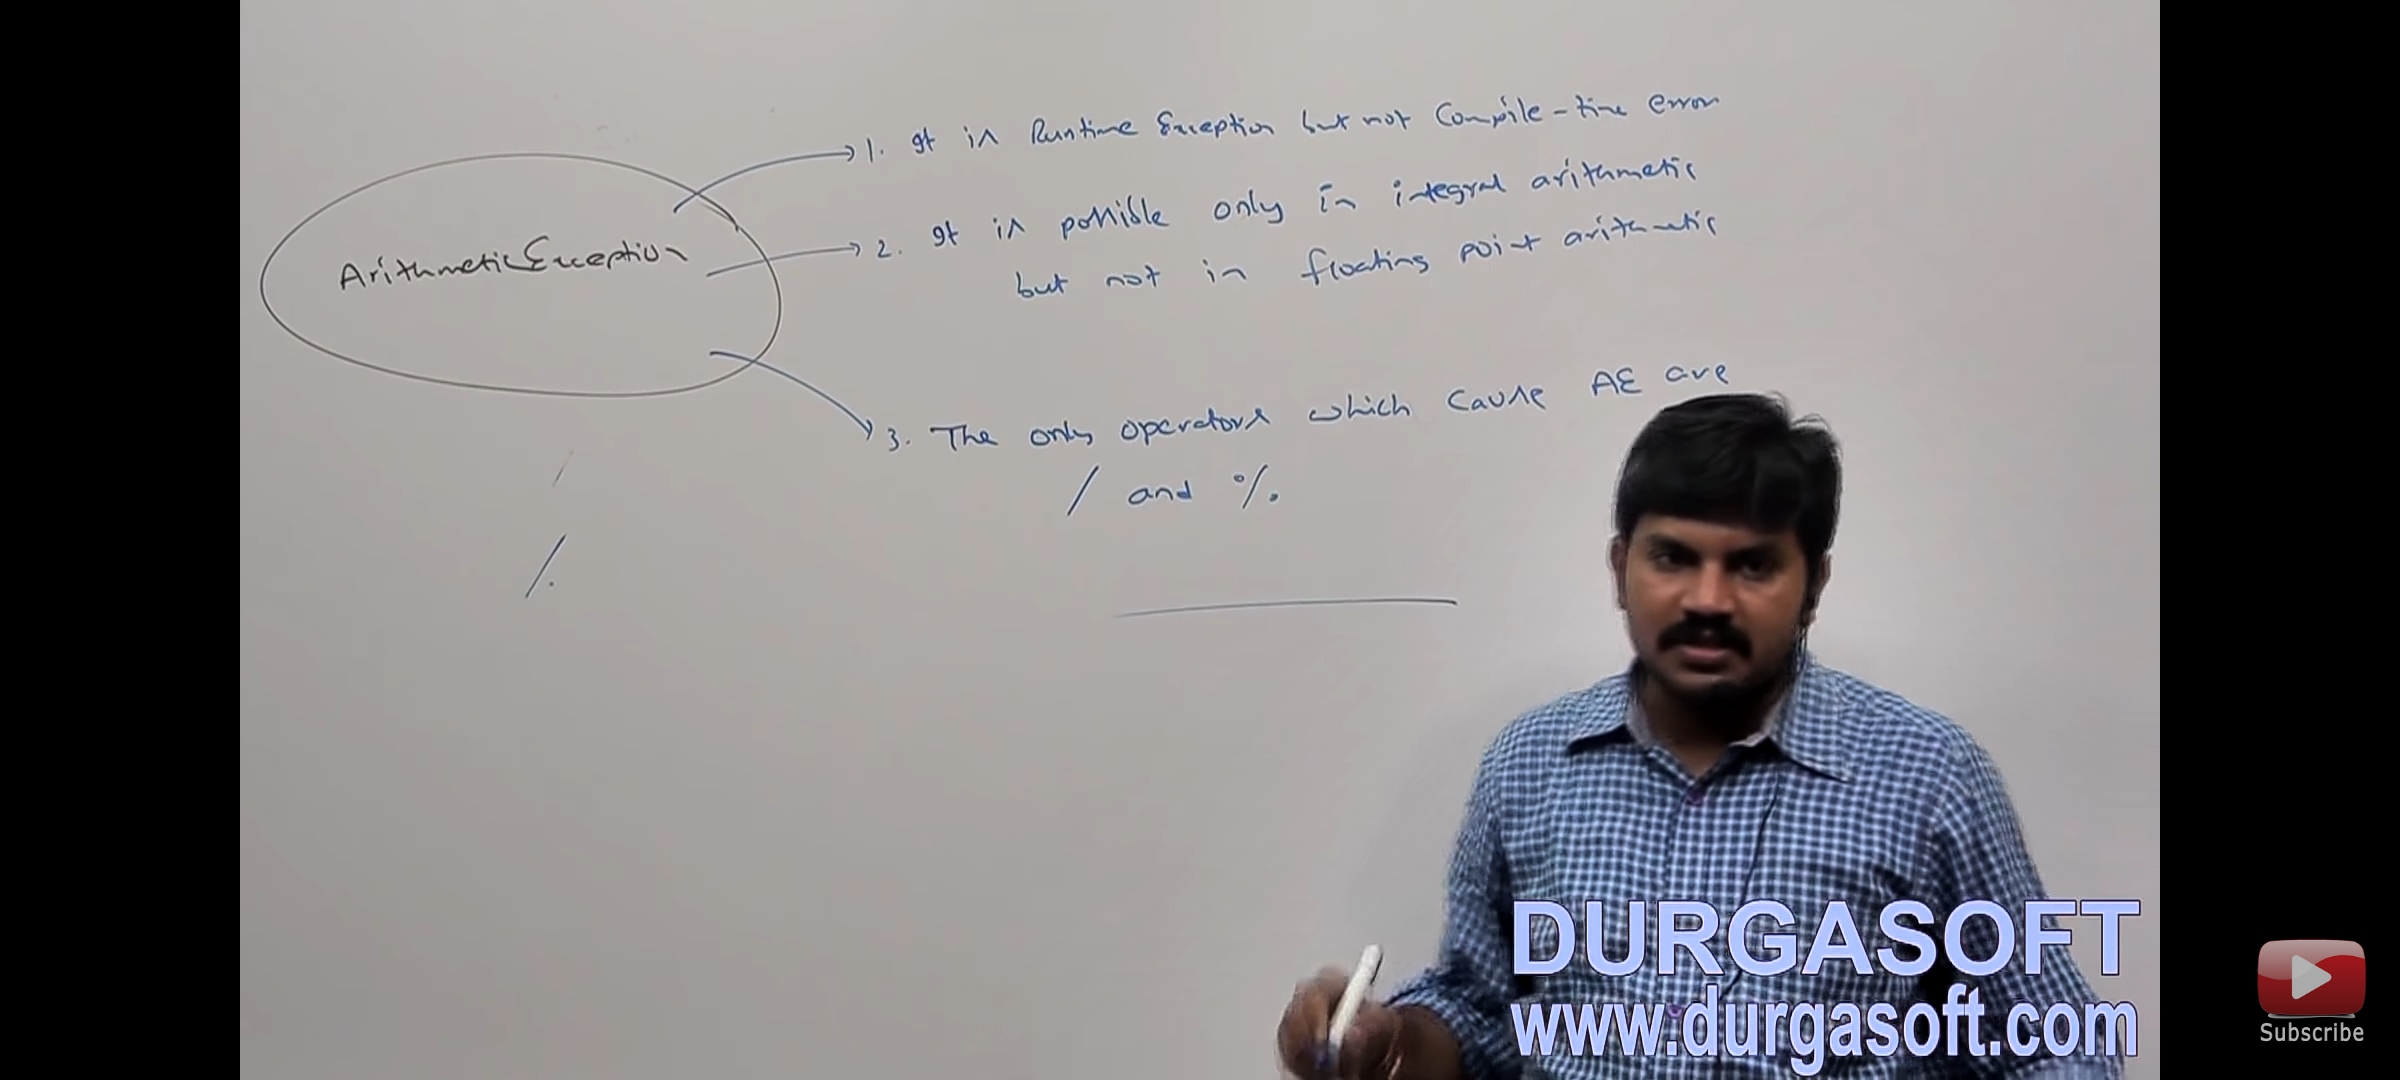 1. It is Runtime Exception but not Compile-time error
2. It is possible only in integral arithmetic
but not in floating point arithmetic
ArithmeticException
3. The only operators which cause AE are
/ and %.
/
%
DURGASOFT
www.durgasoft.com
Subscribe